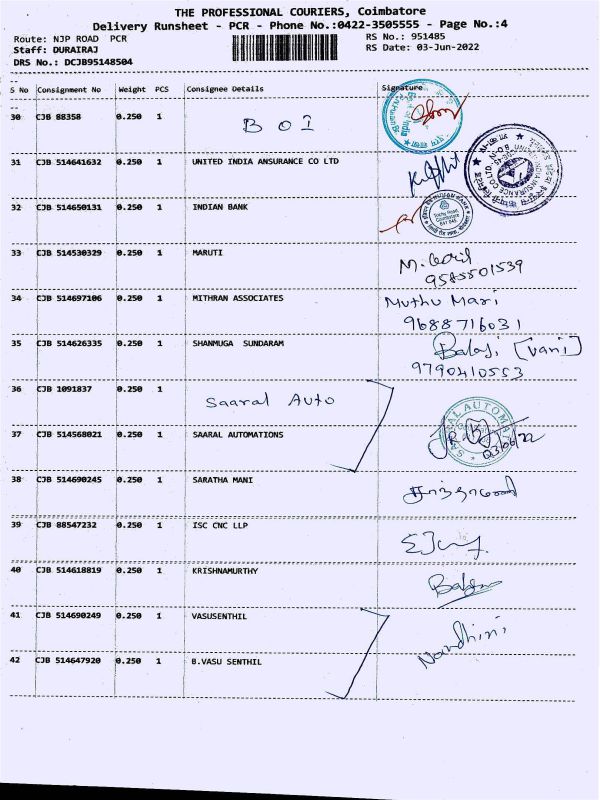 THE PROFESSIONAL COURIERS, Coimbatore
Delivery Runsheet - PCR - Phone No.:0422-3505555 - Page No.:4
Route: NJP ROAD PCR
RS No.: 951485
Staff: DURAIRAJ
RS Date: 03-Jun-2022
DRS No.: DCJB95148504
S No Consignment No Weight PCS Consignee Details Signature
30 CJB 88358 0.250 1 B O I
31 CJB 514641632 0.250 1 UNITED INDIA ANSURANCE CO LTD
32 CJB 514650131 0.250 1 INDIAN BANK
33 CJB 514530329 0.250 1 MARUTI
9585501539
34 CJB 514697106 0.250 1 MITHRAN ASSOCIATES Muthu Mari
9688716031
35 CJB 514626335 0.250 1 SHANMUGA SUNDARAM Balaji [Vani]
9790410553
36 CJB 1091837 0.250 1 Saaral Auto
37 CJB 514568021 0.250 1 SAARAL AUTOMATIONS
03/06/22
38 CJB 514690245 0.250 1 SARATHA MANI
39 CJB 88547232 0.250 1 ISC CNC LLP
40 CJB 514618819 0.250 1 KRISHNAMURTHY
41 CJB 514690249 0.250 1 VASUSENTHIL Nandhini
42 CJB 514647920 0.250 1 B.VASU SENTHIL